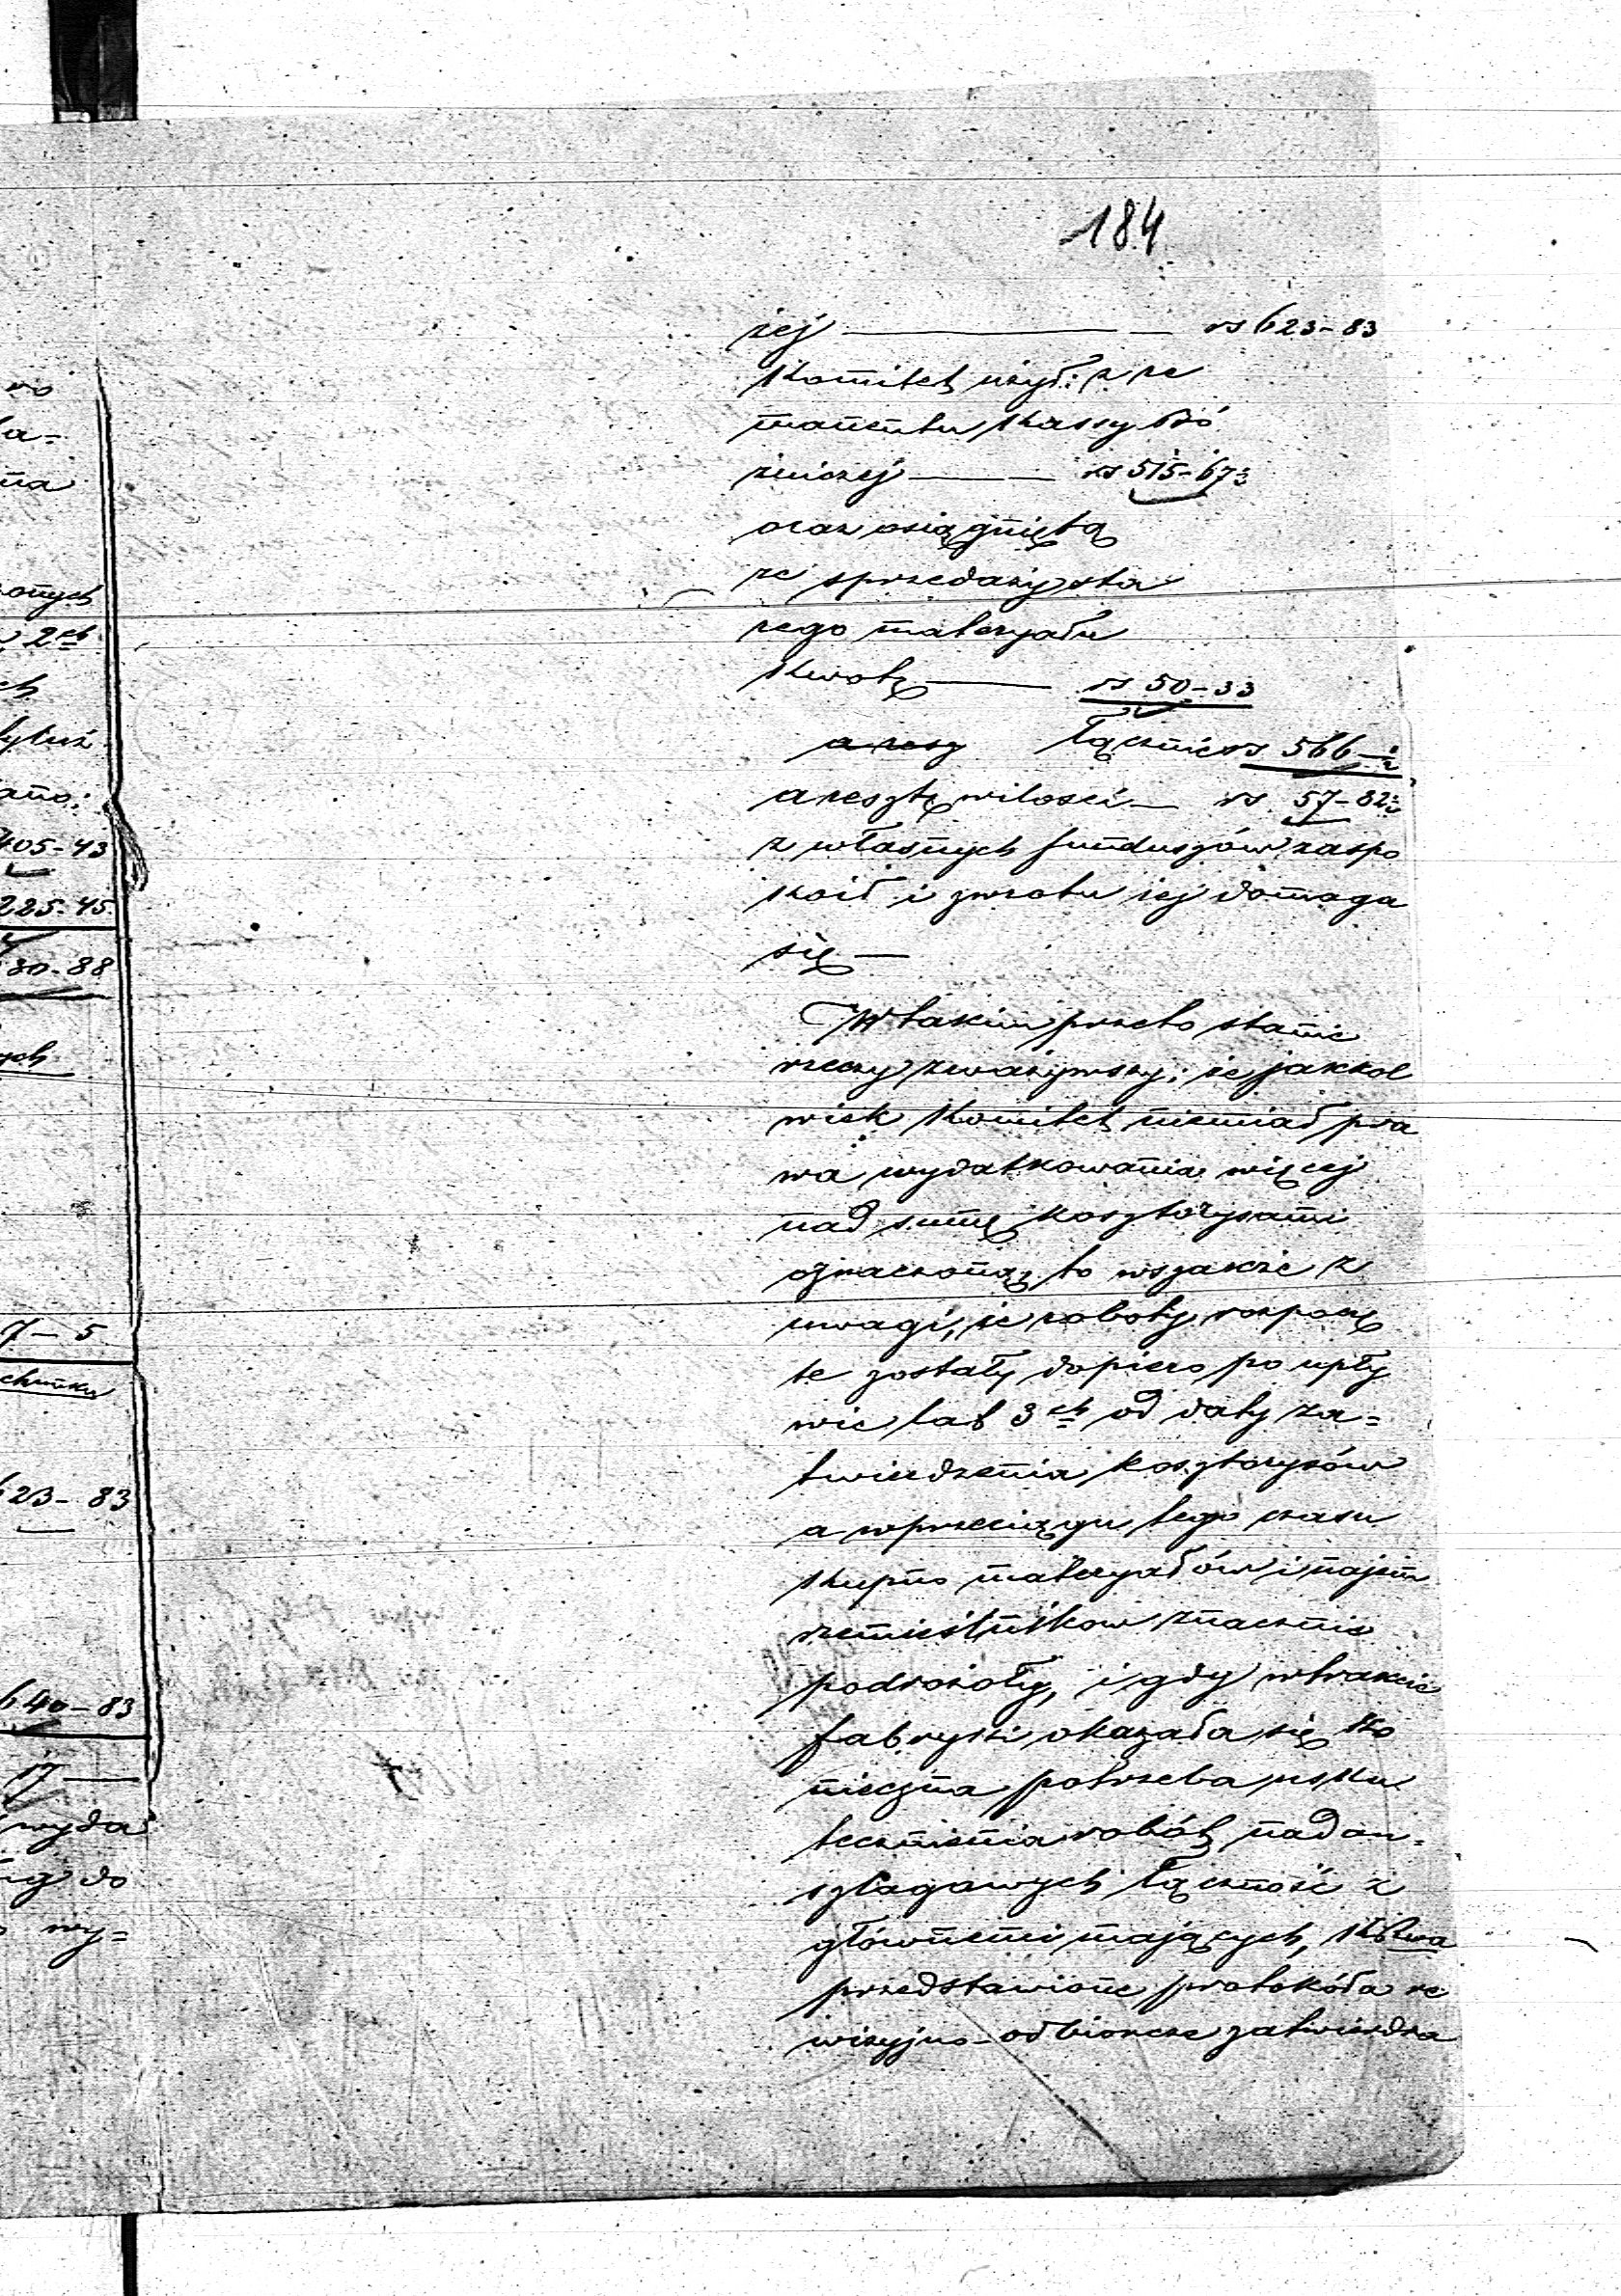 184
żej — rs 623-83
Komitet użył: z re
manentu Kassy Bó
żniczej — rs 515-67½
oraz osiągniętą
ze sprzedaży sta
rego materyału
kwotę — rs 50-33
a resz łącznie rs 566-½
a resztę w ilości — rs 57-82½
z własnych funduszów zaspo
koił i zwrotu jej domaga
się —
W takim przeto stanie
rzeczy zważywszy: że jakkol
wiek Komitet niemiał pra
wa wydatkowania więcej
nad sumę kosztorysami
oznaczoną, to wszakże z
uwagi, że roboty rozpoczę
te zostały dopiero po upły
wie lat 3ch od daty za=
twierdzenia kosztorysów
a w przeciągu tego czasu
kupno materyałów i najem
rzemieślników znacznie
podrożały, i gdy w trakcie
fabryki okazała się ko
nieczna potrzeba usku
tecznienia robót nadan=
szlagowych łączność z
głównemi mających,
przedstawione protokóła re
wizyjno-odbiorcze zatwierdza
wo
la=
na
onych
2ch
ch
405-43
225-45
30-88
ych
7-5
chunku
623-83
640-83
17 —
wyda
do
wy=